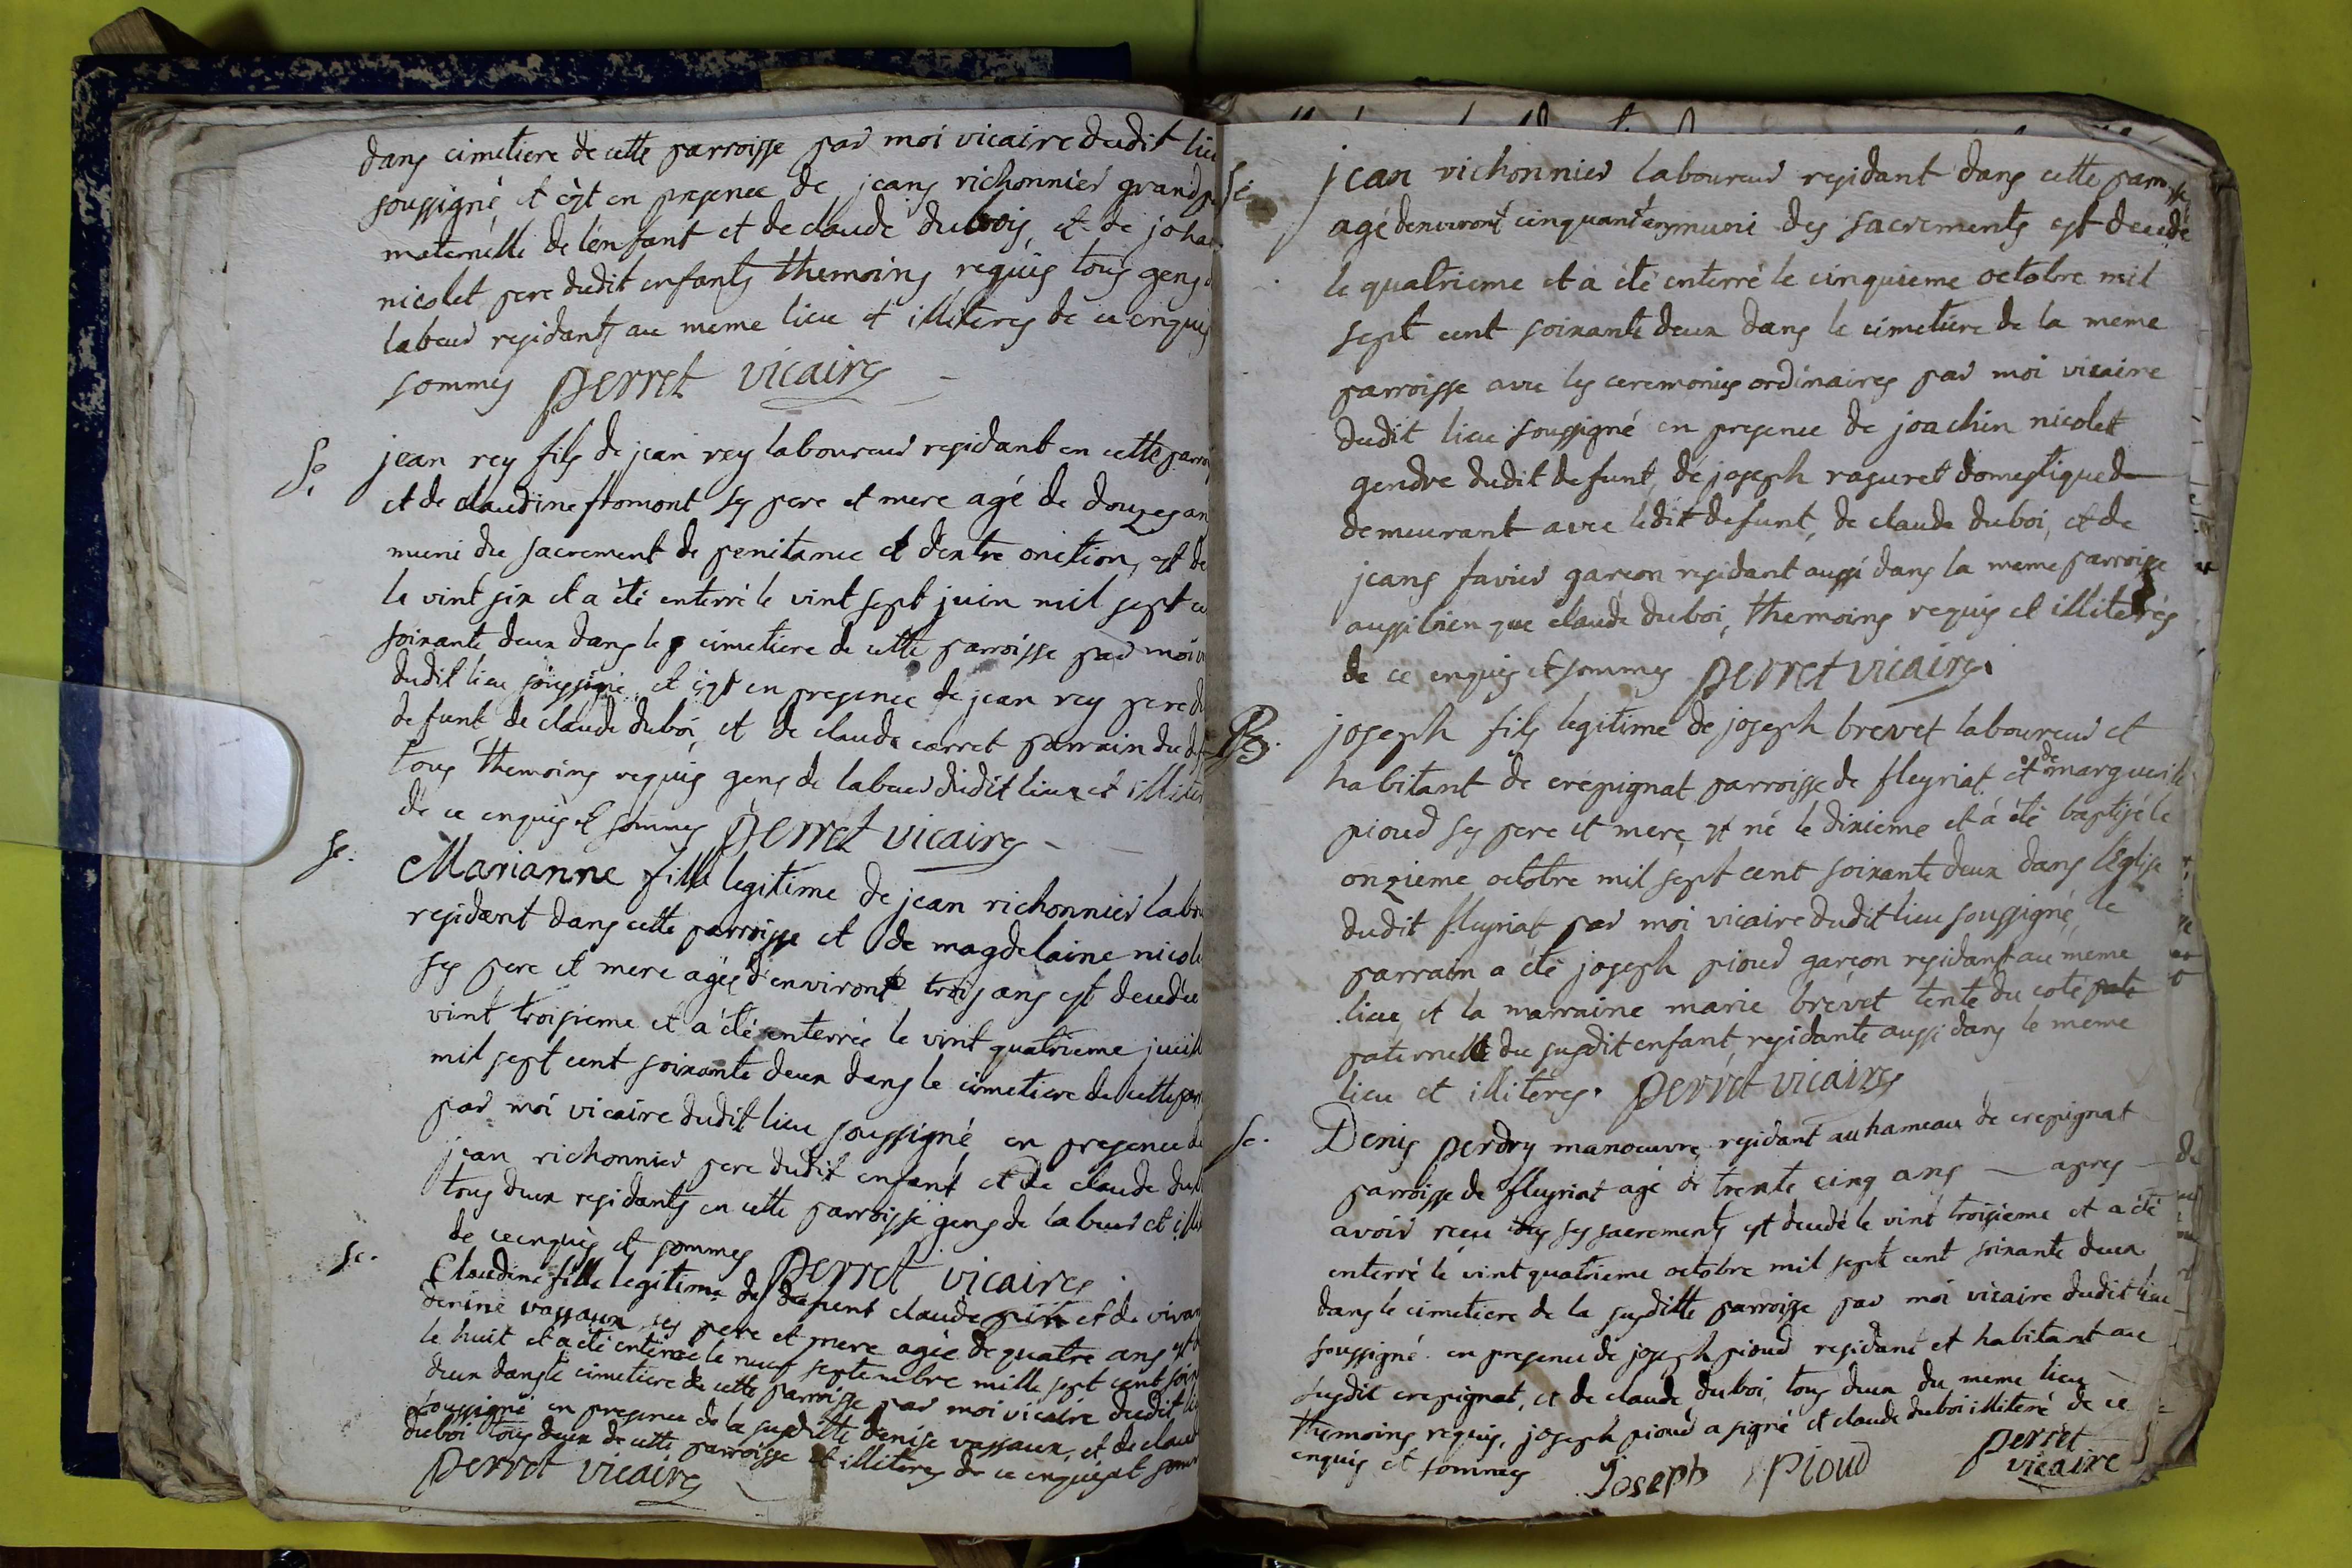 dans cimetiere de cette parroisse par moi vicaire dudit lieu
soussigné et cèst en presence de jeans richonnier grand p
maternelle de lenfant et de claude dubois et de joha
nicolet pere dudit enfants themoins requis tous gens d
labeur residants au meme lieu et illiteres de ce enquis
sommes perret vicaire
Se. jean rey fils de jean rey laboureur residant en cette parroi
et de claudine fromont ses pere et mere agé de douzes an
muni du sacrement de penitance et d'extre onction, est de
le vint six et a été enterré le vint sept juin mil sept ce
soixante deux dans le cimetiere de cette parroisse par moi v
dudit lieu soussigné et cest en presence de jean rey pere d
defunt de claude duboi et de claude carret parrain du def
tous themoins requis gens de labeur dudit lieux et illiter
de ce enquis et sommes perret vicaire
Se. Marianne fille legitime de jean richonnier labou
residant dans cette parroisse et de magdelaine nicole
ses pere et mere agée d'environt trois ans est decedée
vint troisieme et a été enterrée le vint quatrieme juill
mil sept cent soixante deux dans le cimetiere de cette parr
par moi vicaire dudit lieu soussigné en presence de
jean richonnier pere dudit enfant et de claude dub
tous deux residants en cette parroisse gens de labeur et illit
de ce enquis et sommes perret vicaire
Se. Claudine fille legitime de defunt claude pin et de vivan
denine vassaux ses pere et mere agée de quatre ans est d
le huit et a été enterrée le neuf septembre mille sept cent soix
deux dans le cimetiere de cette parroisse par moi vicaire dudit lie
soussigné en presence de la susditte denise vassaux, et de claud
duboi tous deux de cette parroisse et illiteres de ce enquis et somm
perret vicaire
Se. jean richonnier laboureur residant dans cette parroisse
agé denviront cinquante ans muni des sacrements est decedé
le quatrieme et a été enterré le cinquieme octobre mil
sept cent soixante deux dans le cimetiere de la meme
parroisse avec les ceremonies ordinaires par moi vicaire
dudit lieu soussigné en presence de joachin nicolet
gendre dudit defunt, de joseph rasuret domestique de
demeurant avec ledit defunt, de claude duboi, et de
jeans favier garcon residant aussi dans la meme parroisse
aussi bien que claude duboi, themoins requis et illiterés
de ce enquis et sommes perret vicaire
Bap. joseph fils legitime de joseph brevet laboureur et
habitant de crépignat parroisse de fleyriat et de marguerite
pioud ses pere et mere, est né le dixieme et a été baptisé le
onzieme octobre mil sept cent soixante deux dans l'Eglise
dudit fleyriat par moi vicaire dudit lieu soussigné, le
parrain a été joseph pioud garçon residant au meme
lieu, et la marraine marie brevet tente du coté
paternelle du susdit enfant, residante aussi dans le meme
lieu et illiteres. perret vicaire
Se. Denis perdry manoeuvre residant au hameau de crepignat
parroisse de fleyriat agé de trente cinq ans — apres —
avoir reçu ses sacrements est decedé le vint troisieme et a été
enterré le vint quatrieme octobre mil sept cent soixante deux
dans le cimetiere de la susditte parroisse par moi vicaire dudit lieu
soussigné en presence de joseph pioud residant et habitant au
susdit crepignat, et de claude duboi, tous deux du meme lieu
themoins requis, joseph pioud a signé et claude duboi illiteré de ce
enquis et sommes Joseph Pioud perret
vicaire